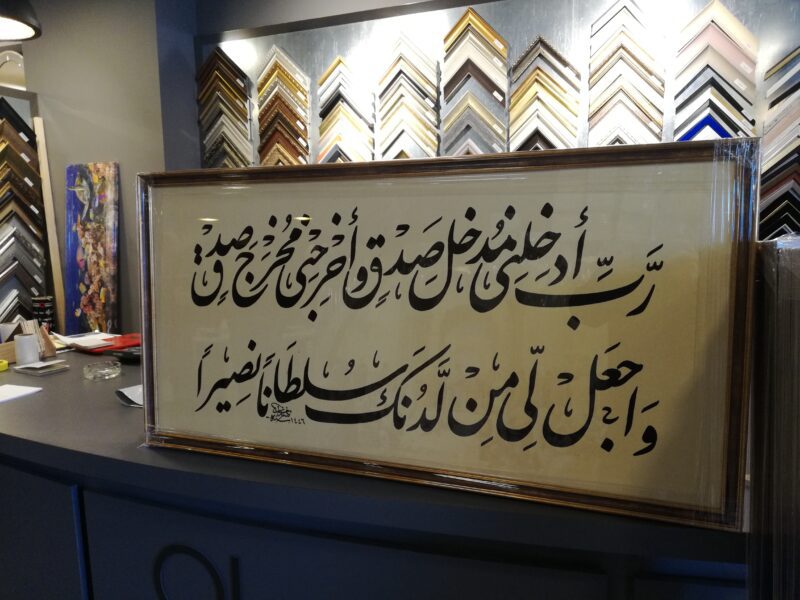 رَّبِّ أَدخِلنِى مُدخَلَ صَدْقٍ وأَخرِجنِى مُخرَجَ صِدقٍ
وَاجعَل لِّى مِن لَّدُنكَ سُلطَانًا نَصِيرًا
١٤٤٦